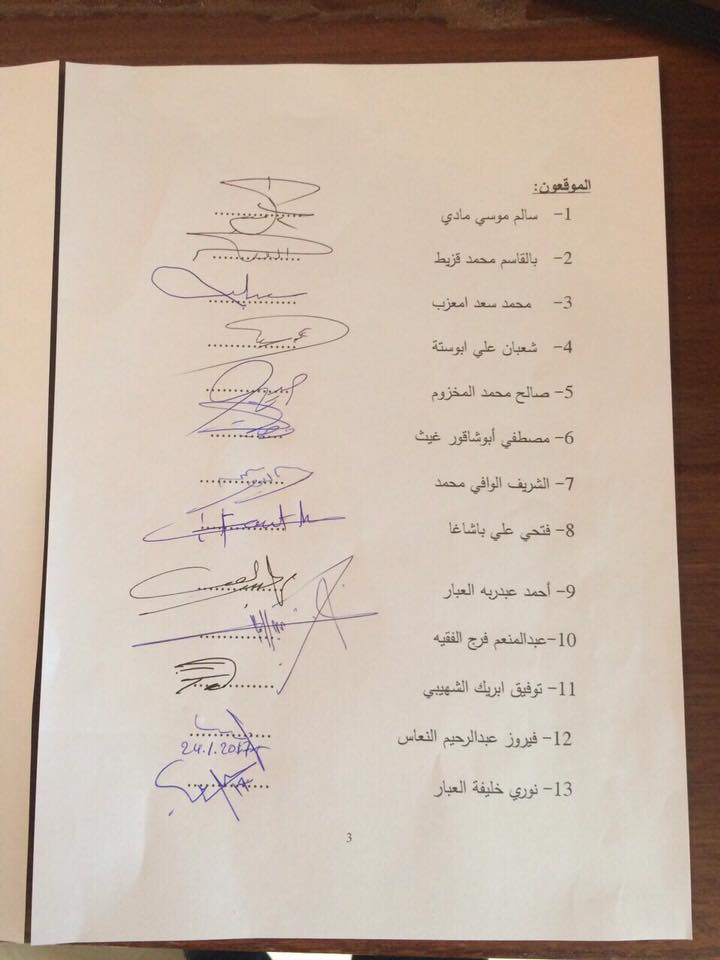 الموقعون:
1- سالم موسي مادي
2- بالقاسم محمد قزيط
3- محمد سعد امعزب
4- شعبان علي ابوستة
5- صالح محمد المخزوم
6- مصطفي أبوشاقور غيث
7- الشريف الوافي محمد
8- فتحي علي باشاغا
9- أحمد عبدربه العبار
10-عبدالمنعم فرج الفقيه
11- توفيق ابريك الشهيبي
12- فيروز عبدالرحيم النعاس
24.1.2017
13- نوري خليفة العبار
3